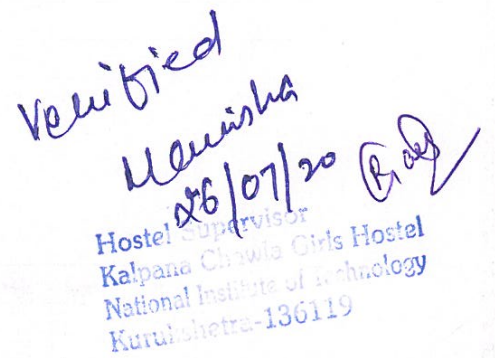 Verified
Manisha
26/07/20
Hostel Supervisor
Kalpana Chawla Girls Hostel
National Institute of Technology
Kurukshetra-136119